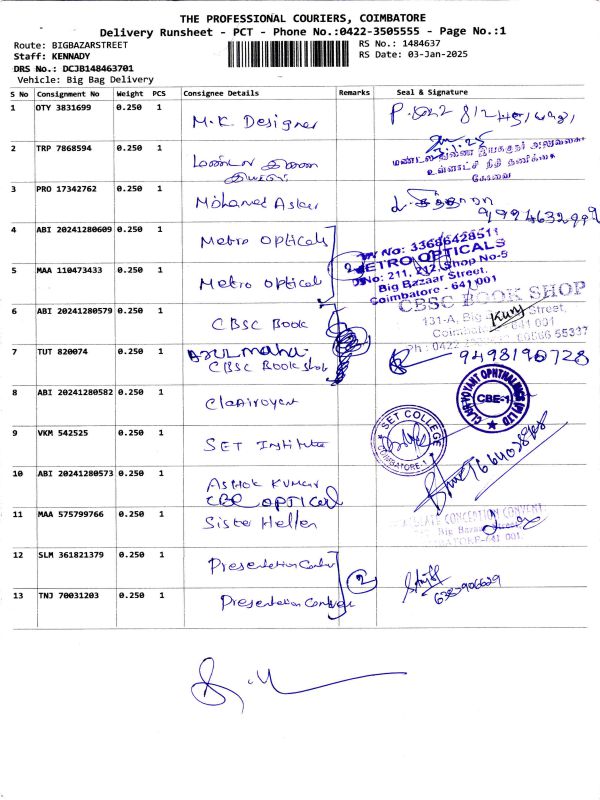 THE PROFESSIONAL COURIERS, COIMBATORE
Delivery Runsheet - PCT - Phone No.:0422-3505555 - Page No.:1
Route: BIGBAZARSTREET
RS No.: 1484637
Staff: KENNADY
RS Date: 03-Jan-2025
DRS No.: DCJB148463701
Vehicle: Big Bag Delivery
S No Consignment No Weight PCS Consignee Details Remarks Seal & Signature
1 OTY 3831699 0.250 1 M.K. Designer
2 TRP 7868594 0.250 1 மண்டல இணை
மண்டல இணை இயக்குநர் அலுவலகம்
உள்ளாட்சி நிதி தணிக்கை
கோவை
3 PRO 17342762 0.250 1 Mohamed
4 ABI 20241280609 0.250 1 Metro Opticals
No: 33686428511
METRO OPTICALS
No: 211, 212, Shop No-5
Big Bazaar Street,
Coimbatore - 641 001
5 MAA 110473433 0.250 1 Metro Optical
2
6 ABI 20241280579 0.250 1 CBSC Book
CBSC BOOK SHOP
131-A, Big Street,
641 001
7 TUT 820074 0.250 1 CBSC Book Shop
9498190728
8 ABI 20241280582 0.250 1 Clairoyent
CLAIRVOYANT OPHTHALMICS (P) LTD
CBE-1
9 VKM 542525 0.250 1 SET Institute
SET COLLEGE
COIMBATORE-1
10 ABI 20241280573 0.250 1 Ashok Kumar
CBE OPTICAL
11 MAA 575799766 0.250 1 Sister Hellen
CONVENT
Big Bazaar Street
641 001
12 SLM 361821379 0.250 1 Presentation
2
13 TNJ 70031203 0.250 1 Presentation Convent